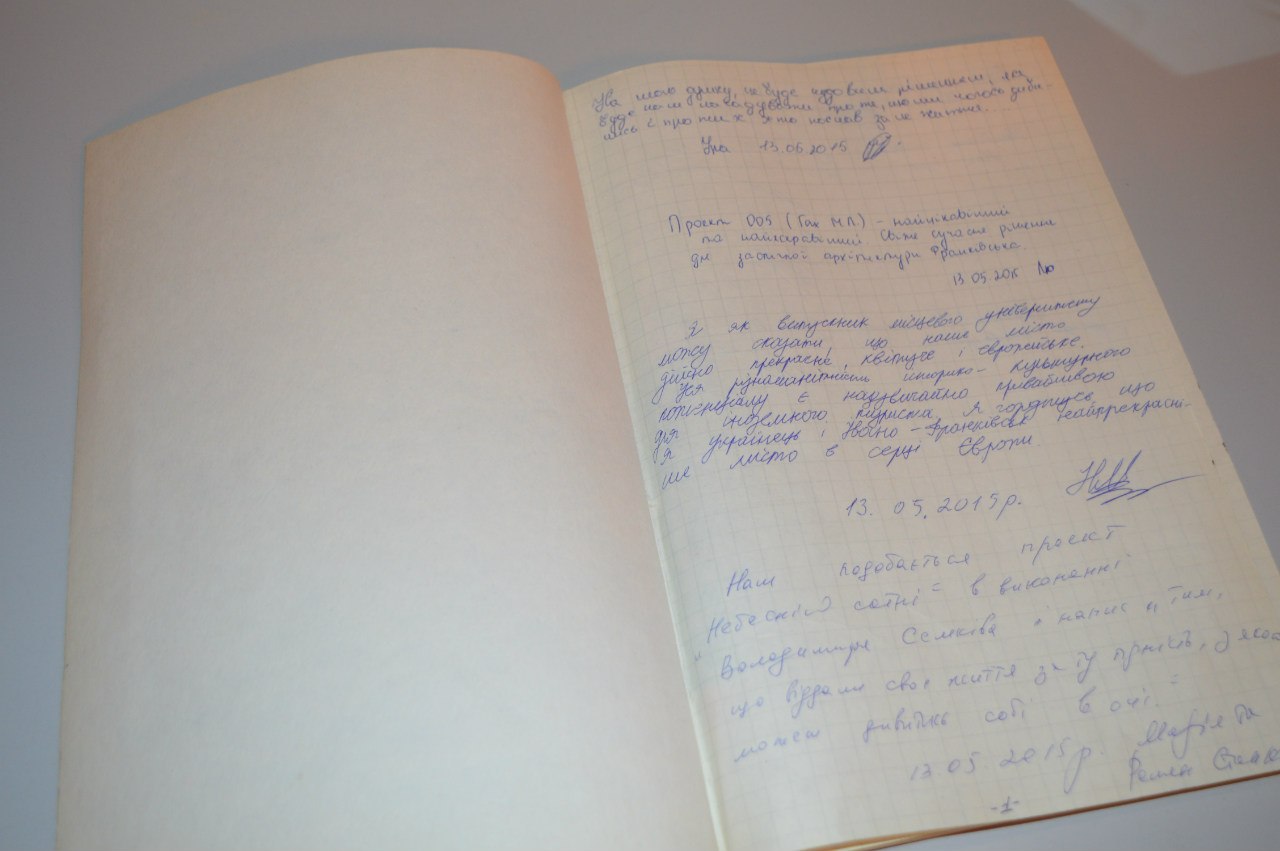 На мою думку, це буде чудовим рішенням, яке
буде нам нагадувати про те, що ми чогось доби-
лись і про тих хто поклав за це життя...
13.06.2015
Проект 005 (Гах М.П.) – найцікавіший
та найяскравіший. Свіже сучасне рішення
для застиглої архітектури Франківська.
13 05.2015
Я як випускник місцевого університету
можу сказати, що наше місто
дійсно прекрасне, квітуче і європейське.
Уся різноманітність історико-культурного
потенціалу є надзвичайно привабливою
для іноземного туриста. Я горджуся, що
я українець і Івано-Франківськ найпрекрасні-
ше місто в серці Європи.
13. 05. 2015р.
Нам подобається проект
"Небесній сотні" в виконанні
Володимира Семківа і напис "Тим,
що віддали своє життя за ту гідність, з якою
можеш дивитись собі в очі."
13 05. 2015р. Марія та
Роман
-1-